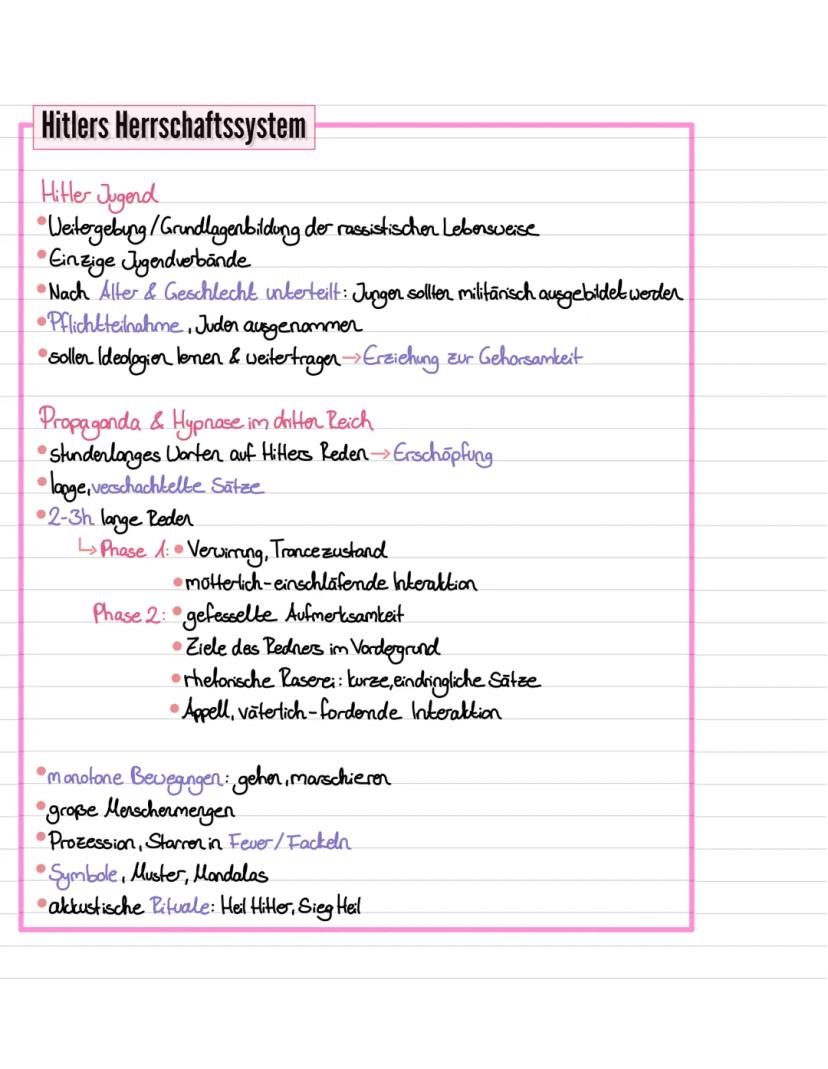 Hitlers Herrschaftssystem
Hitler Jugend
• Weitergebung/Grundlagenbildung der rassistischen Lebensweise
• Einzige Jugendverbände
• Nach Alter & Geschlecht unterteilt: Jungen sollten militärisch ausgebildet werden
• Pflichtteilnahme, Juden ausgenommen
• sollen Ideologien lernen & weitertragen → Erziehung zur Gehorsamkeit
Propaganda & Hypnose im dritten Reich
• Stundenlanges Warten auf Hitlers Reden → Erschöpfung
• lange, verschachtelte Sätze
• 2-3h lange Reden
↳ Phase 1: • Verwirrung, Trancezustand
• mütterlich-einschläfende Interaktion
Phase 2: • gefesselte Aufmerksamkeit
• Ziele des Redners im Vordergrund
• rhetorische Raserei: kurze, eindringliche Sätze
• Appell, väterlich-fordende Interaktion
• monotone Bewegungen: gehen, marschieren
• große Menschenmengen
• Prozession, Starren in Feuer/Fackeln
• Symbole, Muster, Mandalas
• akkustische Rituale: Heil Hitler, Sieg Heil